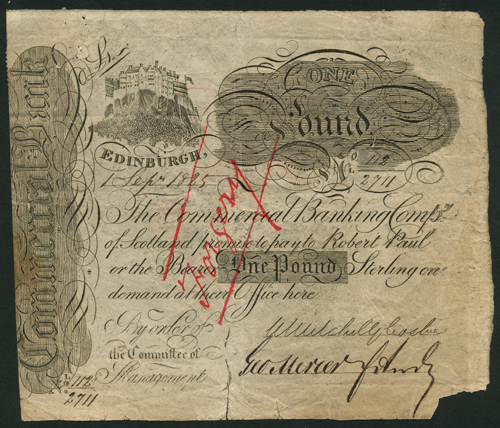 Commercial Bank
£1
ONE
Pound
EDINBURGH,
1 Sepr. 1825
No 112
2711
The Commercial Banking Compy.
of Scotland promise to pay to Robert Paul
or the Bearer One Pound Sterling on
demand at their Office here
By order of
the Committee of
Management
No 112
2711
Geo Mercer
Forgery